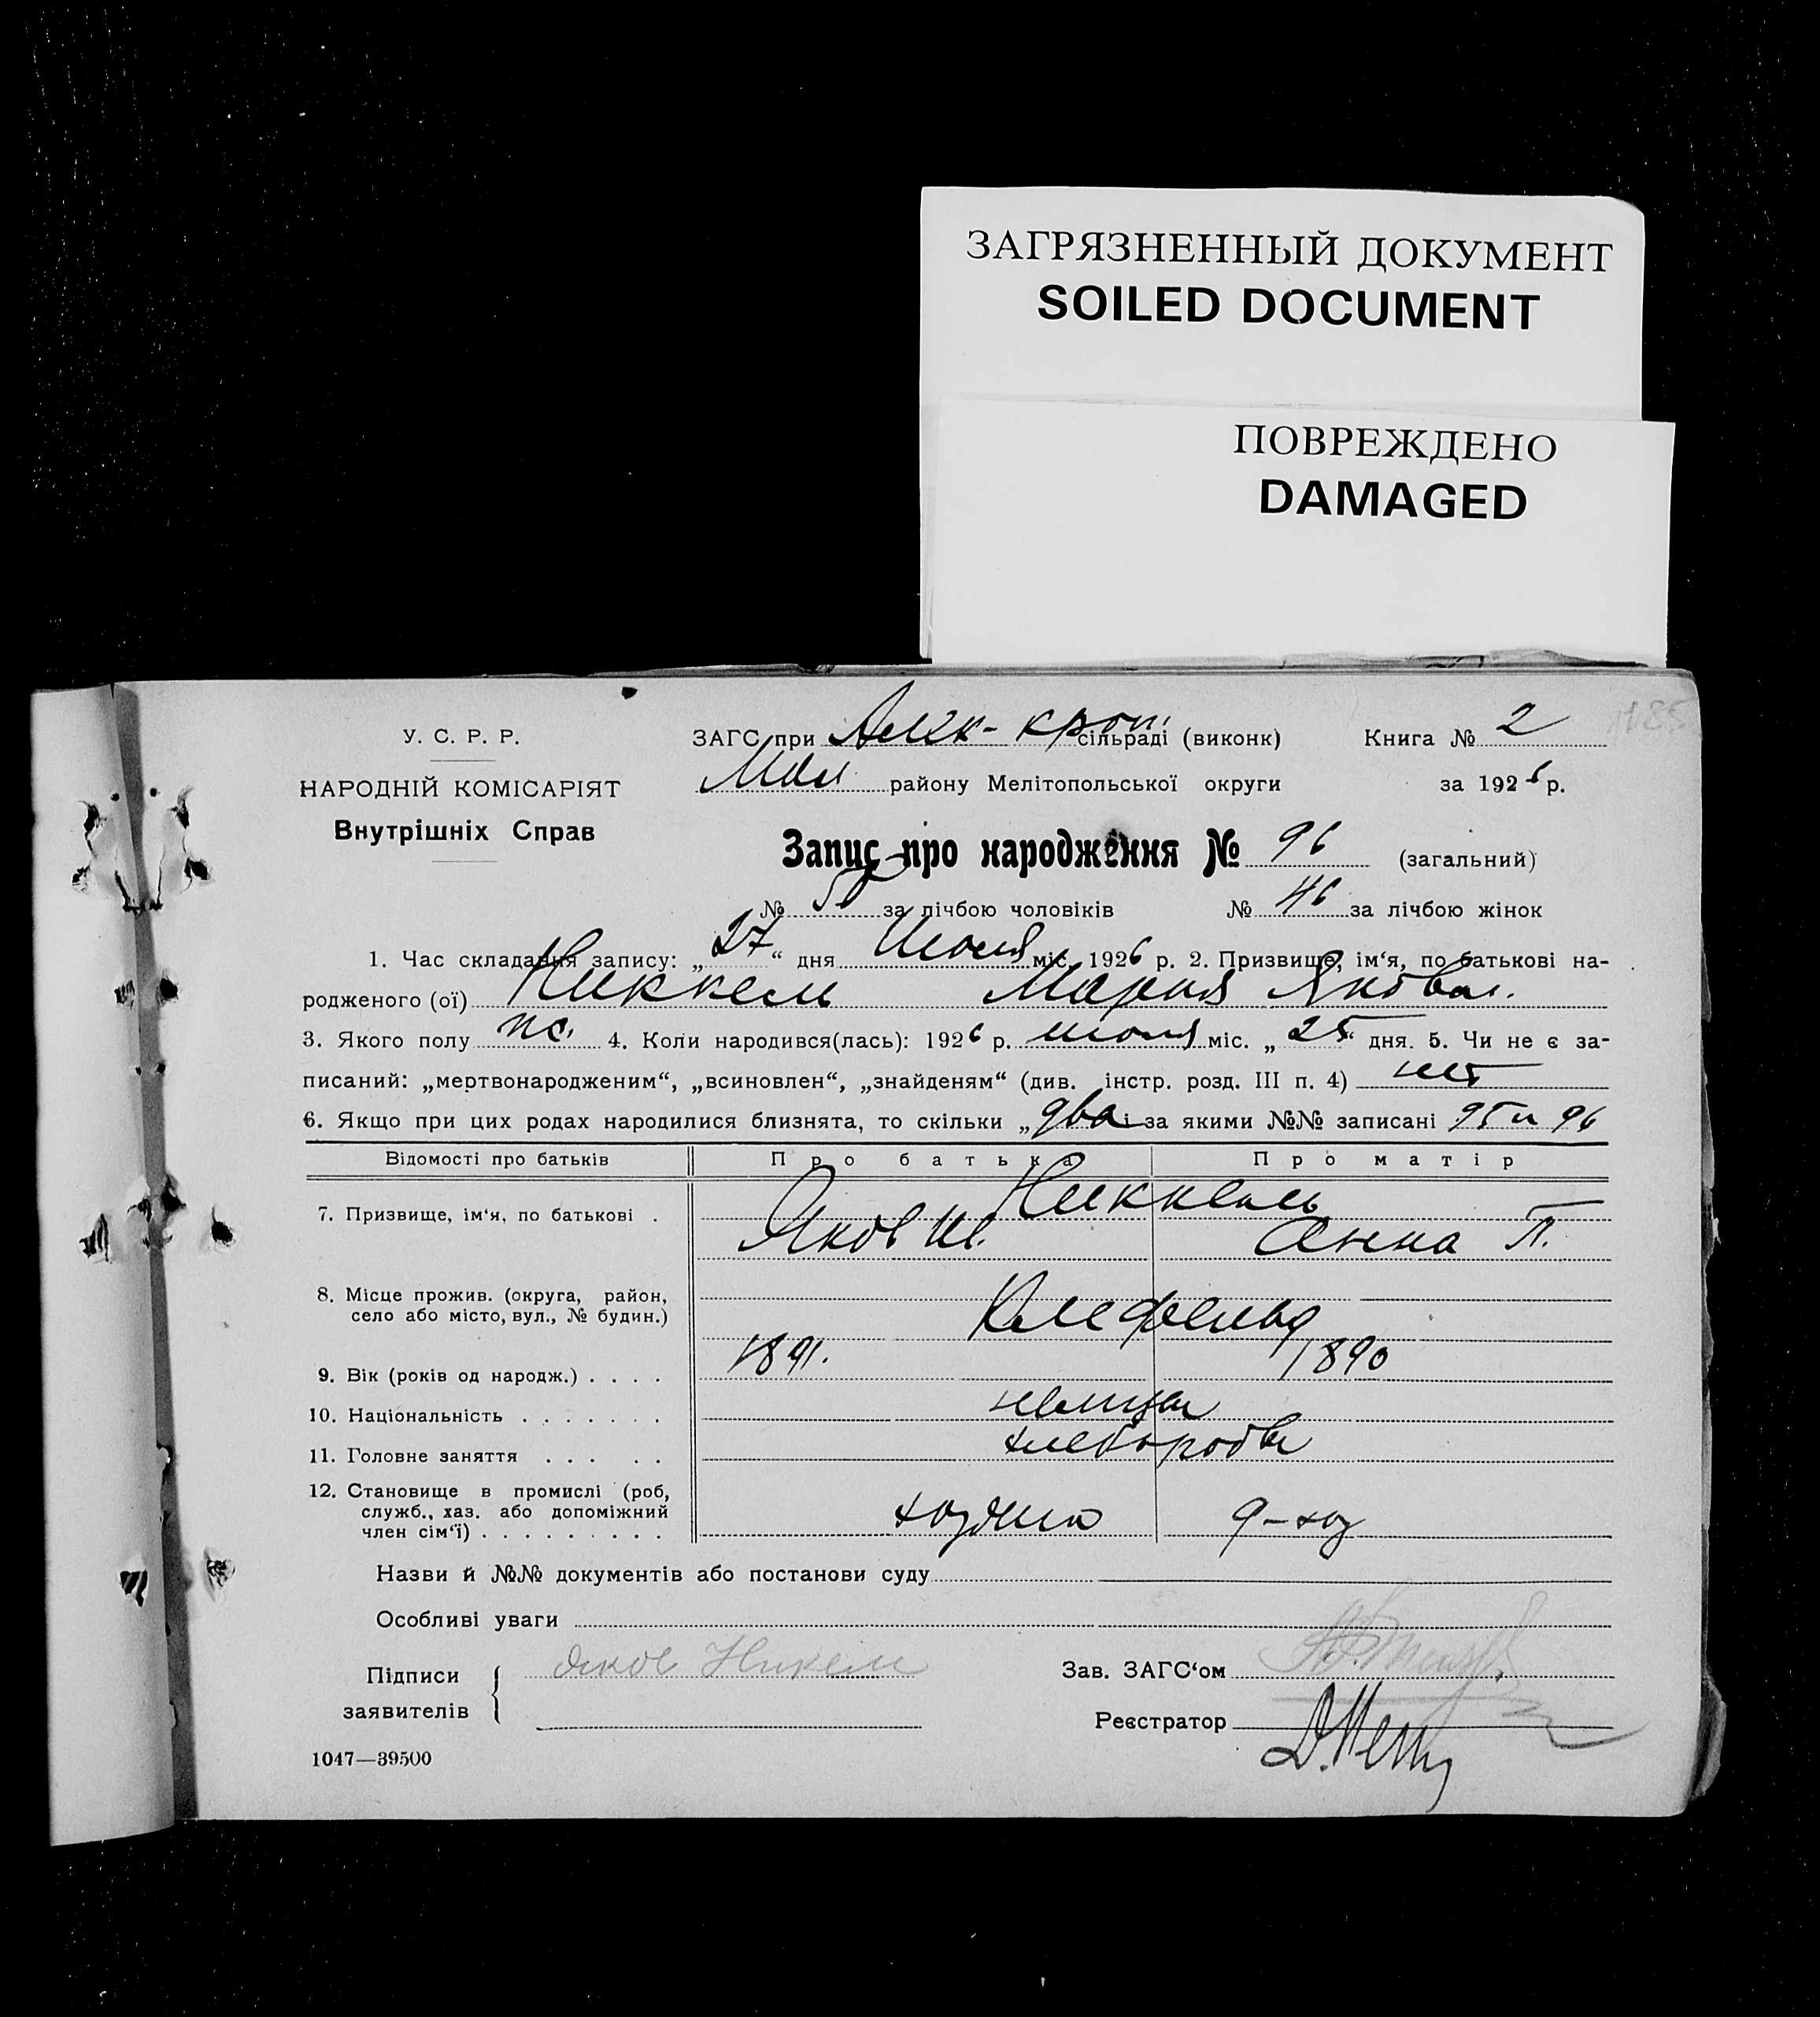 ЗАГРЯЗНЕННЫЙ ДОКУМЕНТ
SOILED DOCUMENT
ПОВРЕЖДЕНО
DAMAGED
У. С. Р. Р.
НАРОДНІЙ КОМІСАРІЯТ
Внутрішніх Справ
ЗАГС при Алек- кроп. сільраді (виконк) Книга № 2
Мол. району Мелітопольської округи за 1926 р.
Запис про народження № 96 (загальний)
№ 50 за лічбою чоловіків № 46 за лічбою жінок
1. Час складання запису: „27“ дня Июня міс. 1926 р. 2. Призвище, ім‘я, по батькові на-
родженого (ої) Никкель Мария Яковл.
3. Якого полу ж. 4. Коли народився(лась): 1926 р. июня міс. „25“ дня. 5. Чи не є за-
писаний: „мертвонародженим“, „всиновлен“, „знайденям“ (див. інстр. розд. III п. 4) нет
6. Якщо при цих родах народилися близнята, то скільки „два і за якими №№ записані 95 и 96
Відомості про батьків Про батька Про матір
7. Призвище, ім‘я, по батькові . Никкель
Яков Анна П.
8. Місце прожив. (округа, район,
село або місто, вул., № будин.) Клефельд
9. Вік (років од народж.) . . . . 1891. 1890
10. Національність . . . . . . . немцы
11. Головне заняття . . . . . хлеборобы
12. Становище в промислі (роб,
служб., хаз. або допоміжний
член сім‘ї) . . . . . . . . . хозяин д-хоз
Назви й №№ документів або постанови суду
Особливі уваги
Підписи
заявителів
Яков Никель
Зав. ЗАГС‘ом
Реєстратор
1047—39500